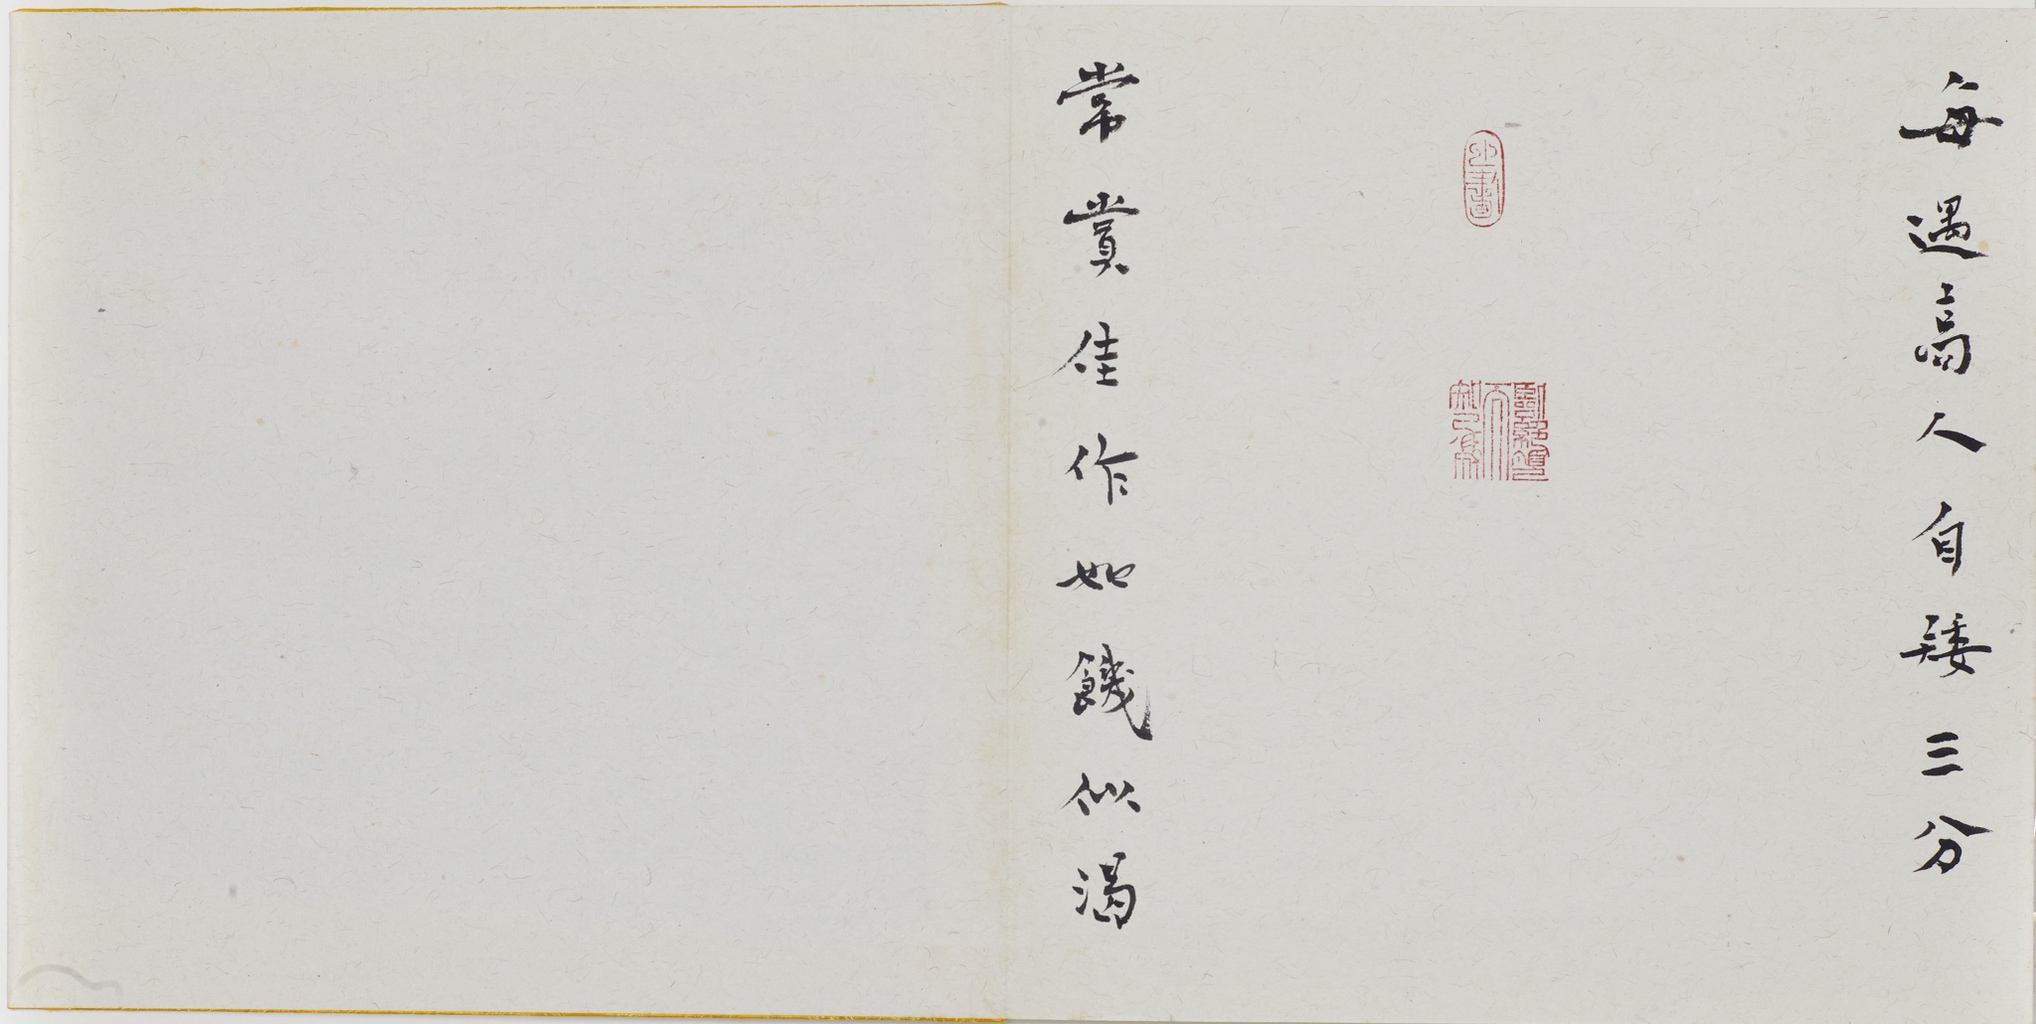 每遇高人自矮三分
常賞佳作如饑似渴